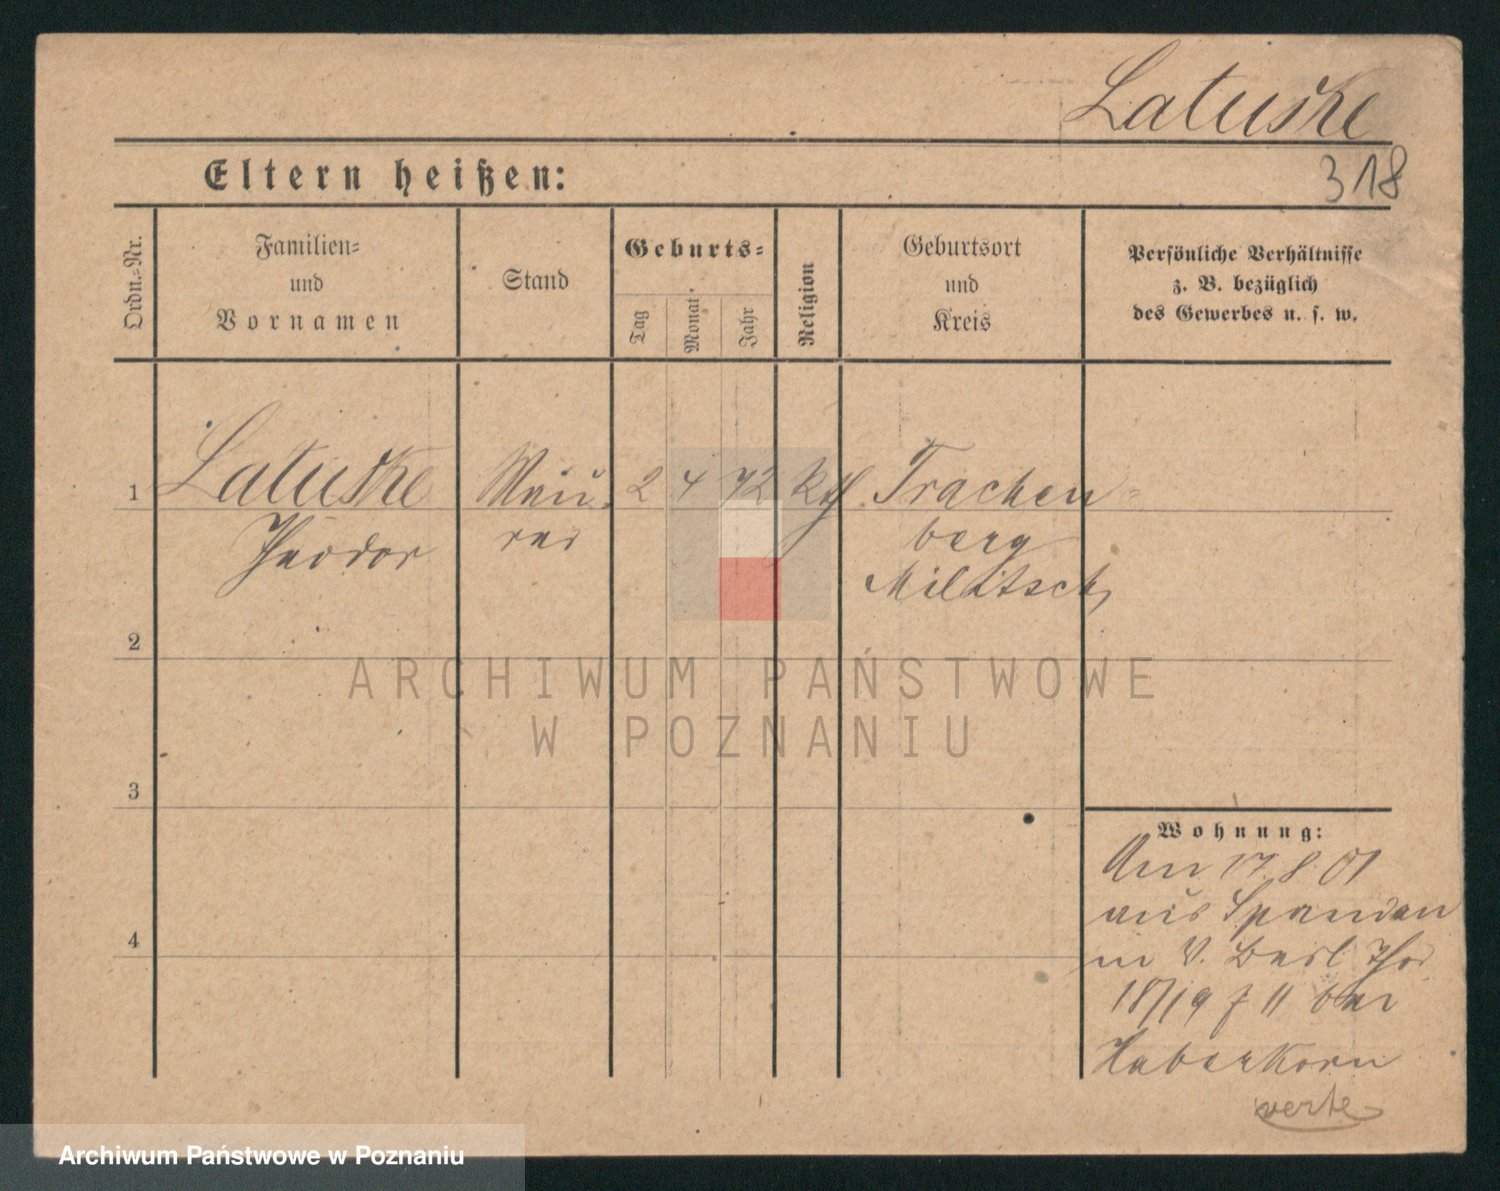 Latuske
318
Eltern heißen:
Ordn.-Nr.
Familien-
und
Vornamen
Stand
Geburts-
Tag
Monat
Jahr
Religion
Geburtsort
und
Kreis
Persönliche Verhältnisse
z. B. bezüglich
des Gewerbes u. s. w.
1 Latuske Mau- 2 4 72 kth. Trachen-
Theodor rer berg
Militsch
2
3
4
Wohnung:
Am 17.8.01
aus Spandau
in V. Berl. Thor
18/19 f 11 bei
Haberkorn
verte
ARCHIWUM PAŃSTWOWE
W POZNANIU
Archiwum Państwowe w Poznaniu